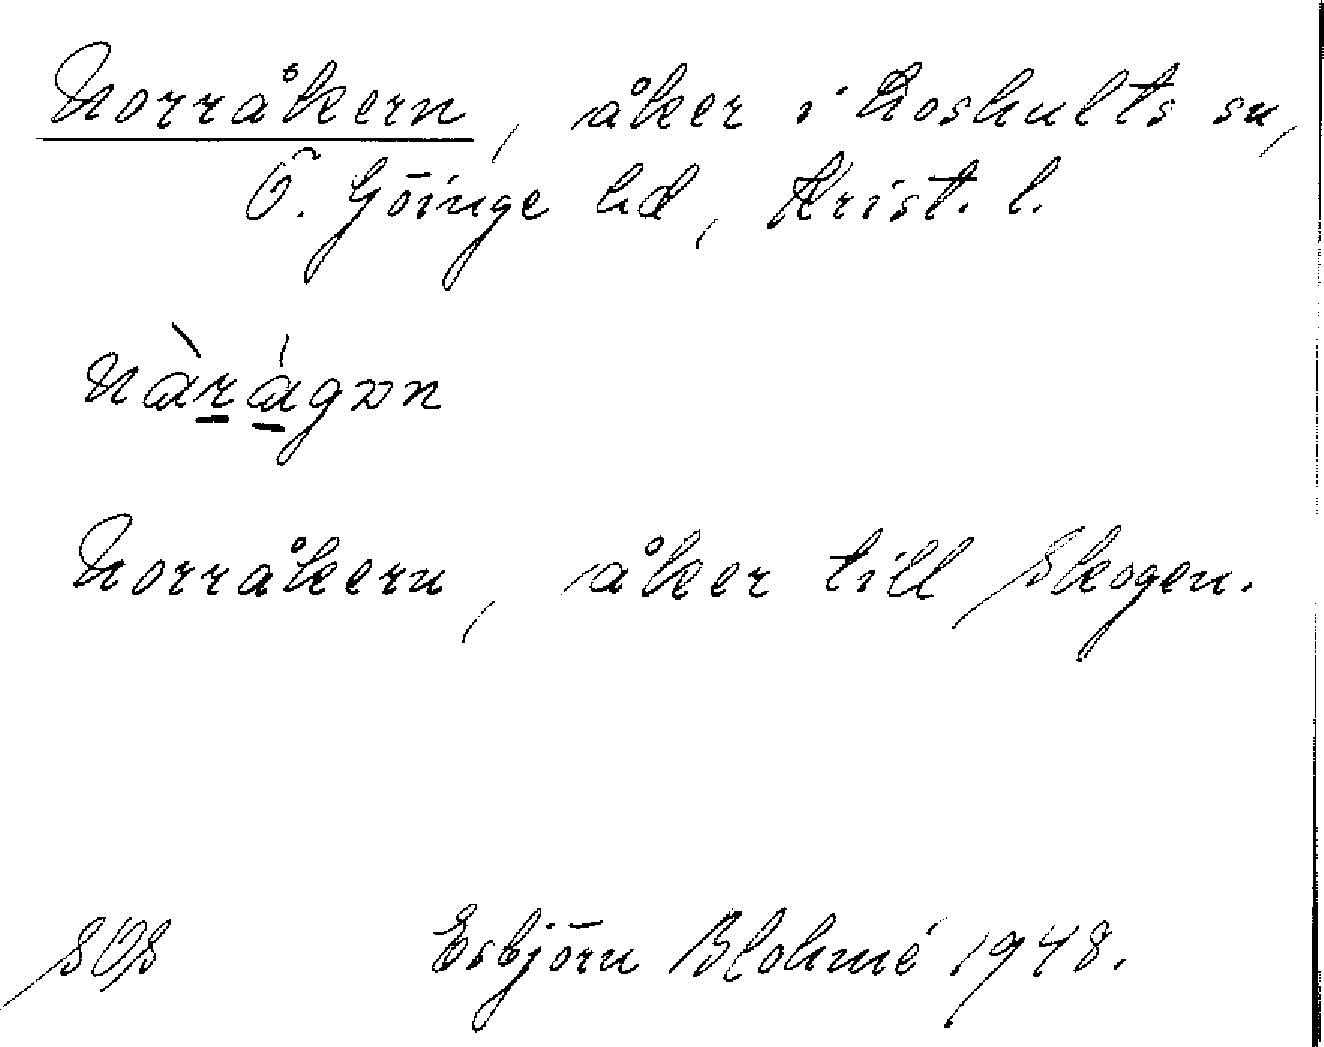 Norråkern, åker i Loshults sn,
Ö. Göinge hd, Krist. l.
Norråkern, åker till Skogen.
SOS Esbjörn Blohmé 1948.